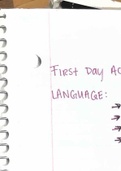 First Day AC
LANGUAGE:
→
→
→
→